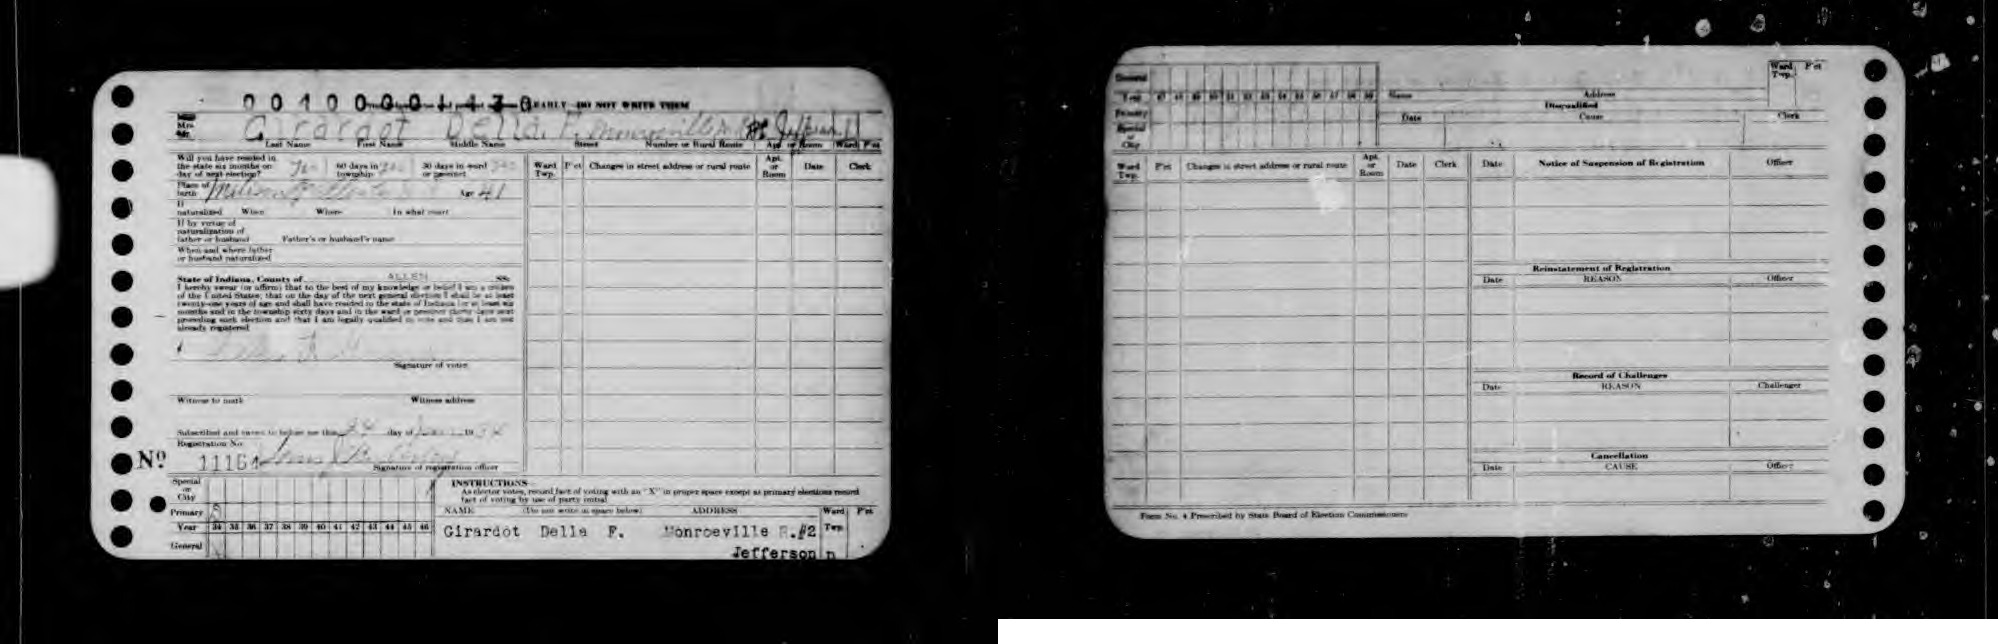 0010000143
EARLY DO NOT WRITE THEM
Mrs.
Girardot Della F. Monroeville
Last Name First Name Middle Name Street Number or Rural Route Apt. or Room Ward Pct
Will you have resided in
the state six months on
day of next election? Yes
60 days in
township? Yes
30 days in ward
or precinct Yes
Place of
birth Age 41
If
naturalized When Where In what court
If by virtue of
naturalization of
father or husband Father's or husband's name
When and where father
or husband naturalized
State of Indiana, County of ALLEN SS:
I hereby swear (or affirm) that to the best of my knowledge or belief I am a citizen
of the United States; that on the day of the next general election I shall be at least
twenty-one years of age and shall have resided in the state of Indiana for at least six
months and in the township sixty days and in the ward or precinct thirty days next
preceding such election and that I am legally qualified to vote and that I am not
already registered
Della F.
Signature of voter
Witness to mark Witness address
Subscribed and sworn to before me this 24 day of 1934
Registration No.
Nº 11164
Signature of registration officer
Ward
Twp. P'ct Changes in street address or rural route Apt.
or
Room Date Clerk
Special
or
City
Primary
Year 34 35 36 37 38 39 40 41 42 43 44 45 46
General
INSTRUCTIONS
As elector votes, record fact of voting with an "X" in proper space except at primary elections record
fact of voting by use of party initial
NAME (Do not write in space below) ADDRESS Ward P'ct
Girardot Della F. Monroeville R.#2 Twp.
Jefferson n
General
Year 47 48 49 50 51 52 53 54 55 56 57 58 59
Primary
Special
or
City
Name Address
Disqualified
Date Cause Clerk
Ward
Twp. P'ct
Ward
Twp. P'ct Changes in street address or rural route Apt.
or
Room Date Clerk
Date Notice of Suspension of Registration Officer
Reinstatement of Registration
Date REASON Officer
Record of Challenges
Date REASON Challenger
Cancellation
Date CAUSE Officer
Form No. 4 Prescribed by State Board of Election Commissioners